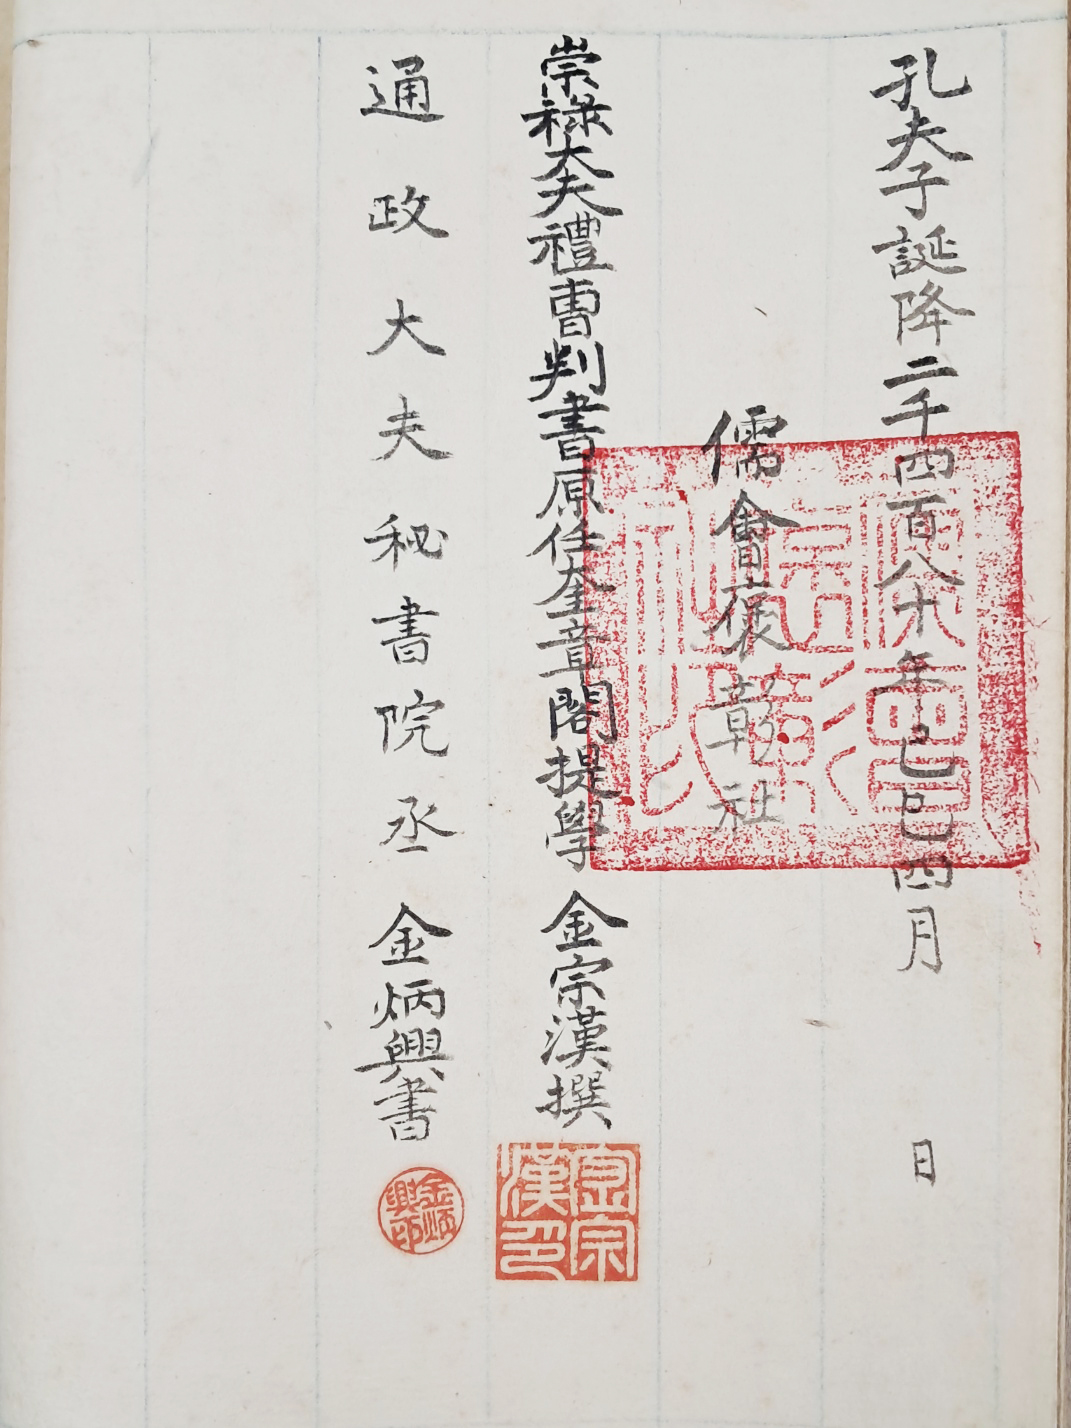 孔夫子誕降二千四百八十年己巳四月 日
儒會褒彰社
儒會褒彰社印
崇祿大夫禮曺判書原任奎章閣提學 金宗漢撰
金宗漢印
通政大夫秘書院丞 金炳興書
金炳興印